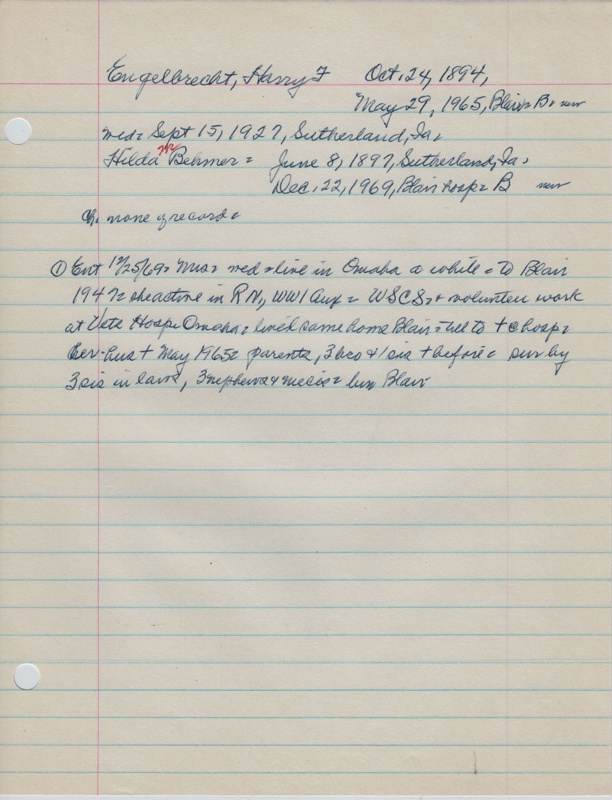 Engelbrecht, Harry F Oct. 24, 1894,
May 29, 1965, Blair= B= new
med= Sept 15, 1927, Sutherland, Ia=
Hilda Behmer= June 8, 1897, Sutherland, Ia=
Dec. 22, 1969, Blair hosp= B new
Ch. none of record=
① Ent 12/25/69= Mrs= med=live in Omaha a while= to Blair
1947= she active in RN, WW1 Aux= WSCS= + volunteer work
at Vets Hosp= Omaha= lived same home Blair= to + @ hosp=
hus + May 1965= parents, 3 bro & 1 sis + before= sur by
3 sis in laws, 3 nephews & nieces= Blair